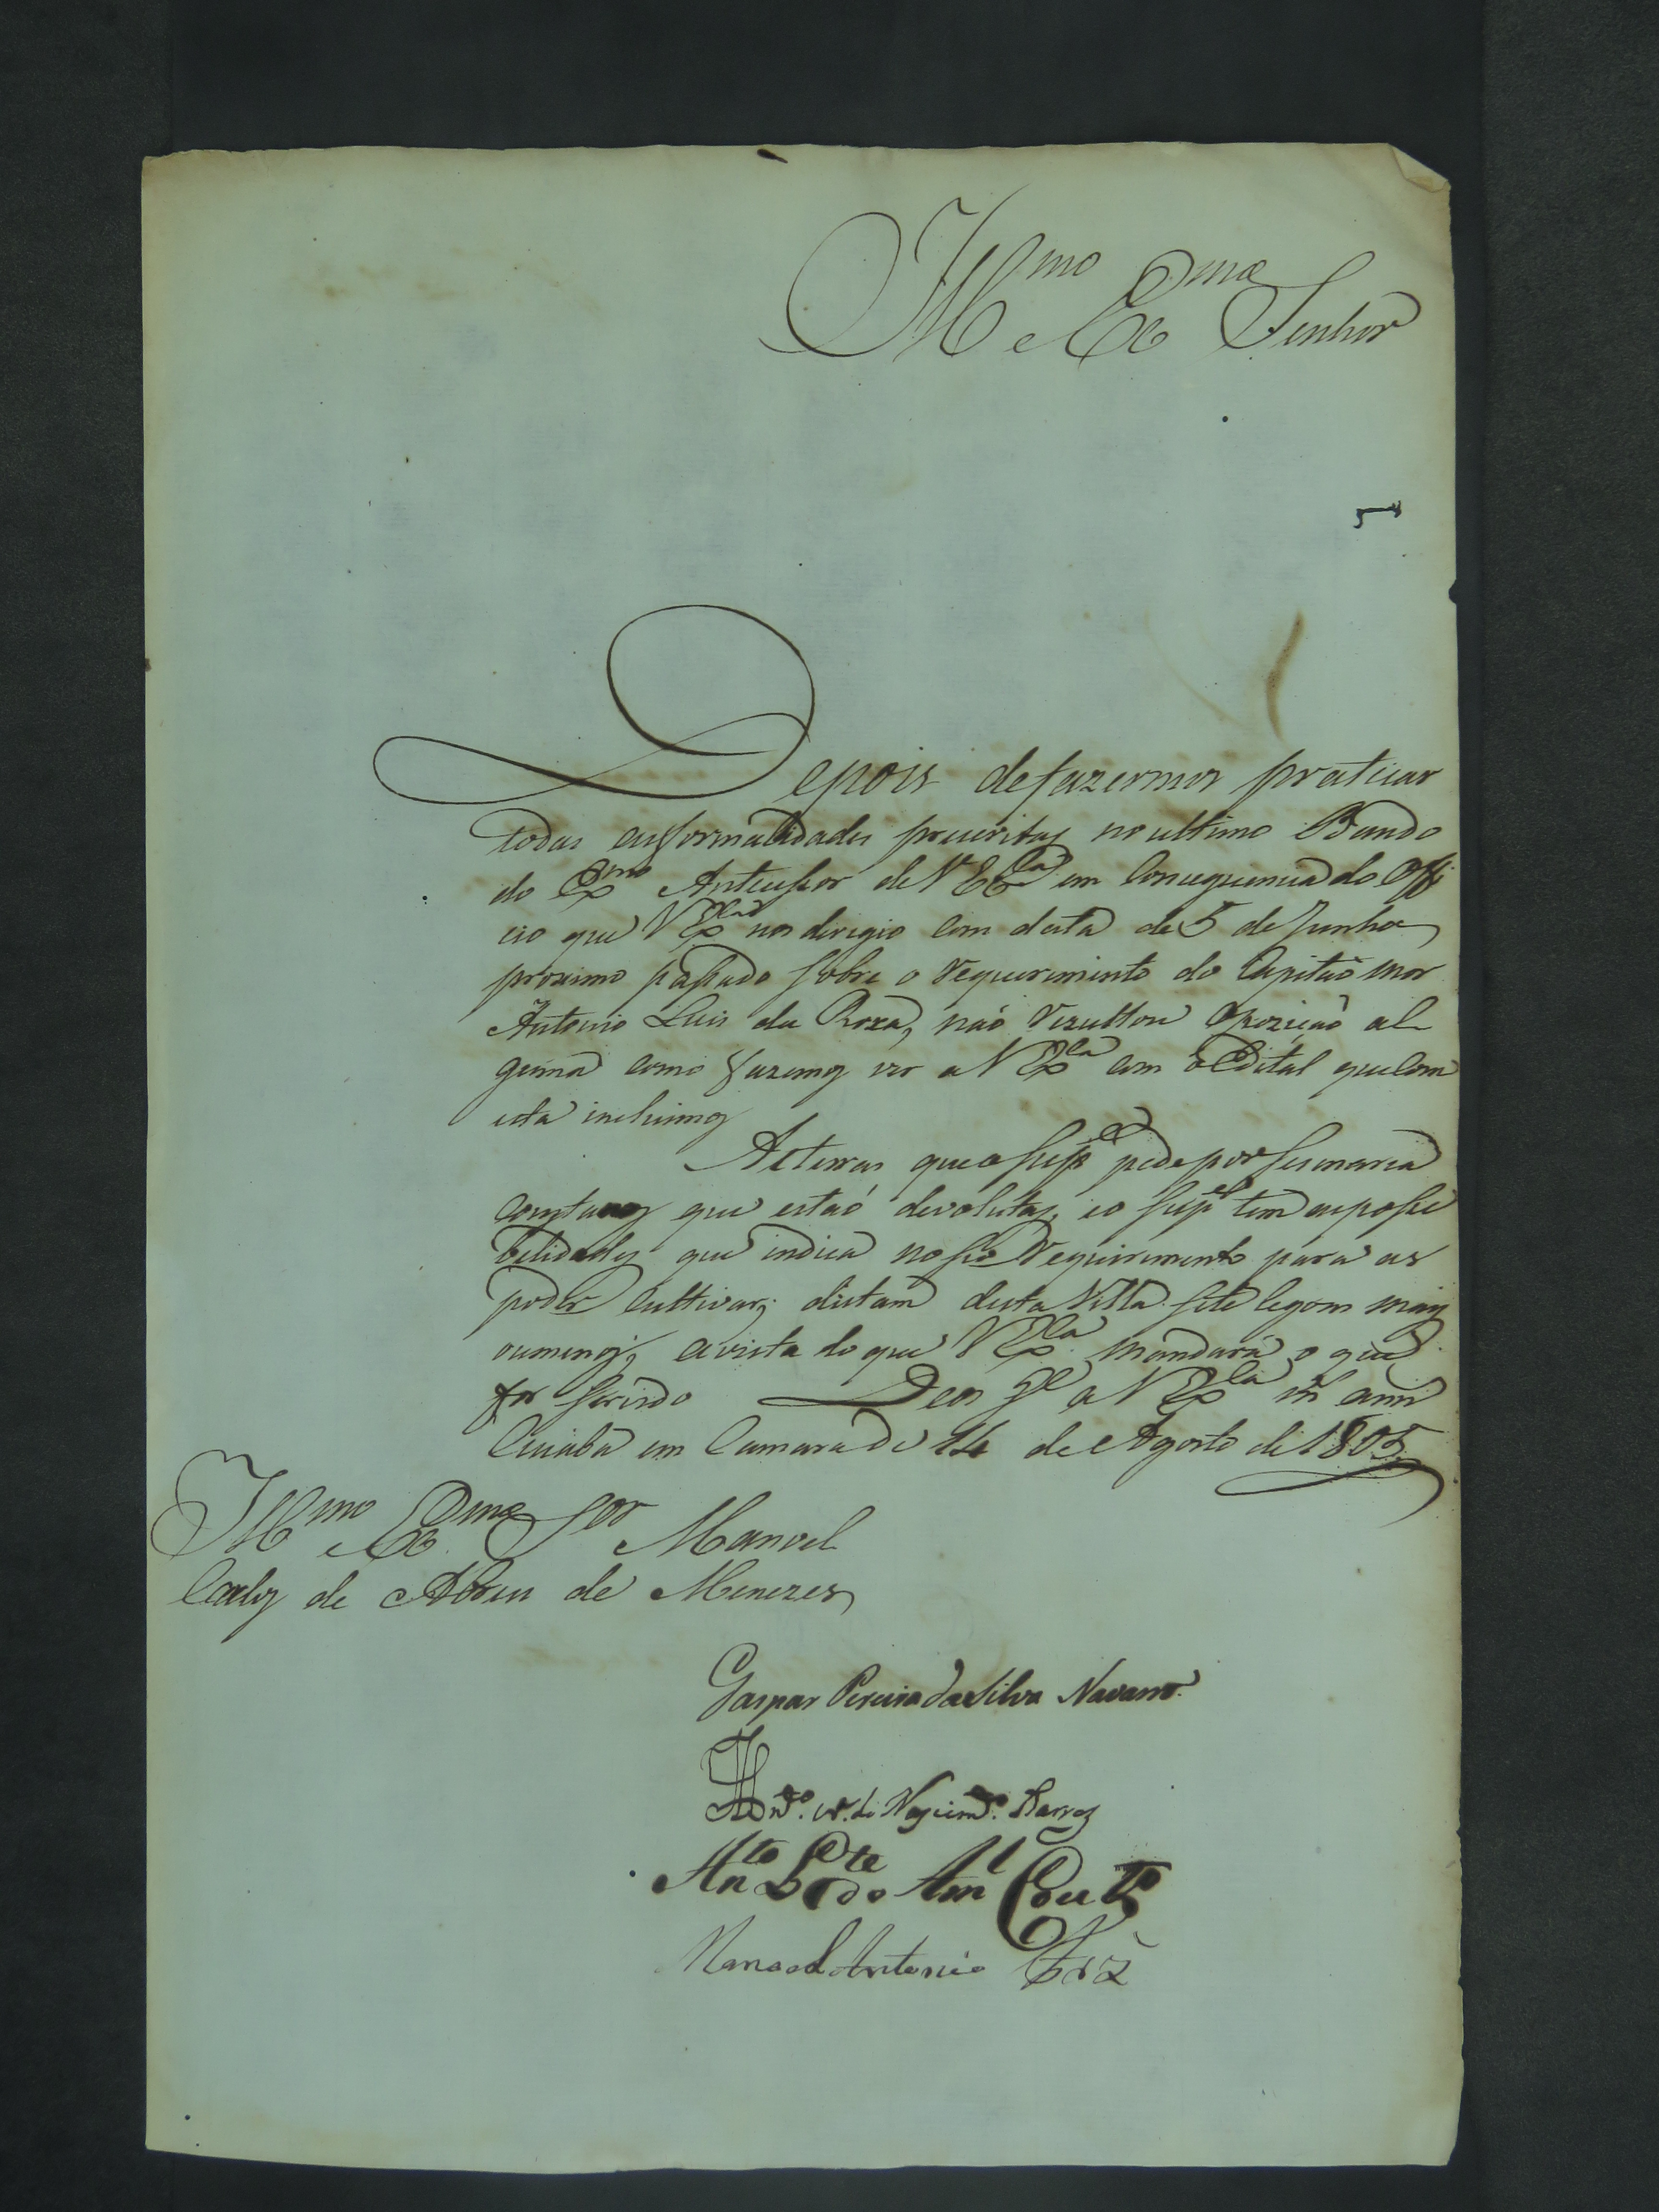 Ill.mo e Ex.mo Senhor
Depois de fazermos praticar
todas as formalidades prescritas no ultimo Bando
do Ex.mo Antecessor de V Ex.cia em consequencia do Offi
cio que V Ex.cia nos dirigio com data de 5 de Junho
proximo passado sobre o requerimento do Capitão mor
Antonio Luis da Roza, não rezultou opozição al
guma como fazemos ver a V Ex.cia com o Edital que com
esta incluimos
As terras que o sup.e pede por sesmaria
constanos que estaó devolutas, e o sup.e tem as possi
bilidades que indica no seo requerimento para as
poder cultivar; distam desta Villa sete legoas mais
ou menos; a vista do que V Ex.cia mandará o que
for servido Deos g.e a V Ex.cia m.s ann.s
Cuiabá em Camara de 14 de Agosto de 1805
Ill.mo e Ex.mo S.or Manoel
Carlos de Abreu de Menezes
Gaspar Pereira da Silva Navarro.
do Nascim.to Barros
Ant.o
Manoel Antonio